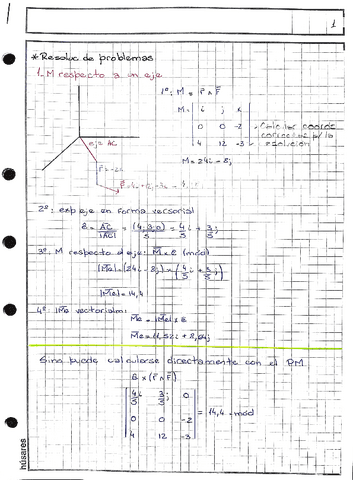 1
*Resoluc de problemas
1_M respecto a un eje
1º: M = r ∧ F
M = | i j k
0 0 -2
4 12 -3
→ Calcular coordc
correctas p/ la
resolución
M = 24i - 8j
eje = AC
r = -2k
2º: exp eje en forma versorial
ê = AC/|AC| = (4,3,0)/5 = 4/5 i + 3/5 j
3º: M respecto al eje: M × ê (mód)
|Me| = (24i - 8j) × (4/5 i + 3/5 j)
|Me| = 14,4
4º: Me vectorial:
Me = |Me| × ê
Me = 11,52i + 8,64j
Sino puede calcularse directamente con el PM
ê × (r ∧ F)
4/5 i 3/5 j 0
0 0 -2
4 12 -3
= 14,4 → mód
húsares